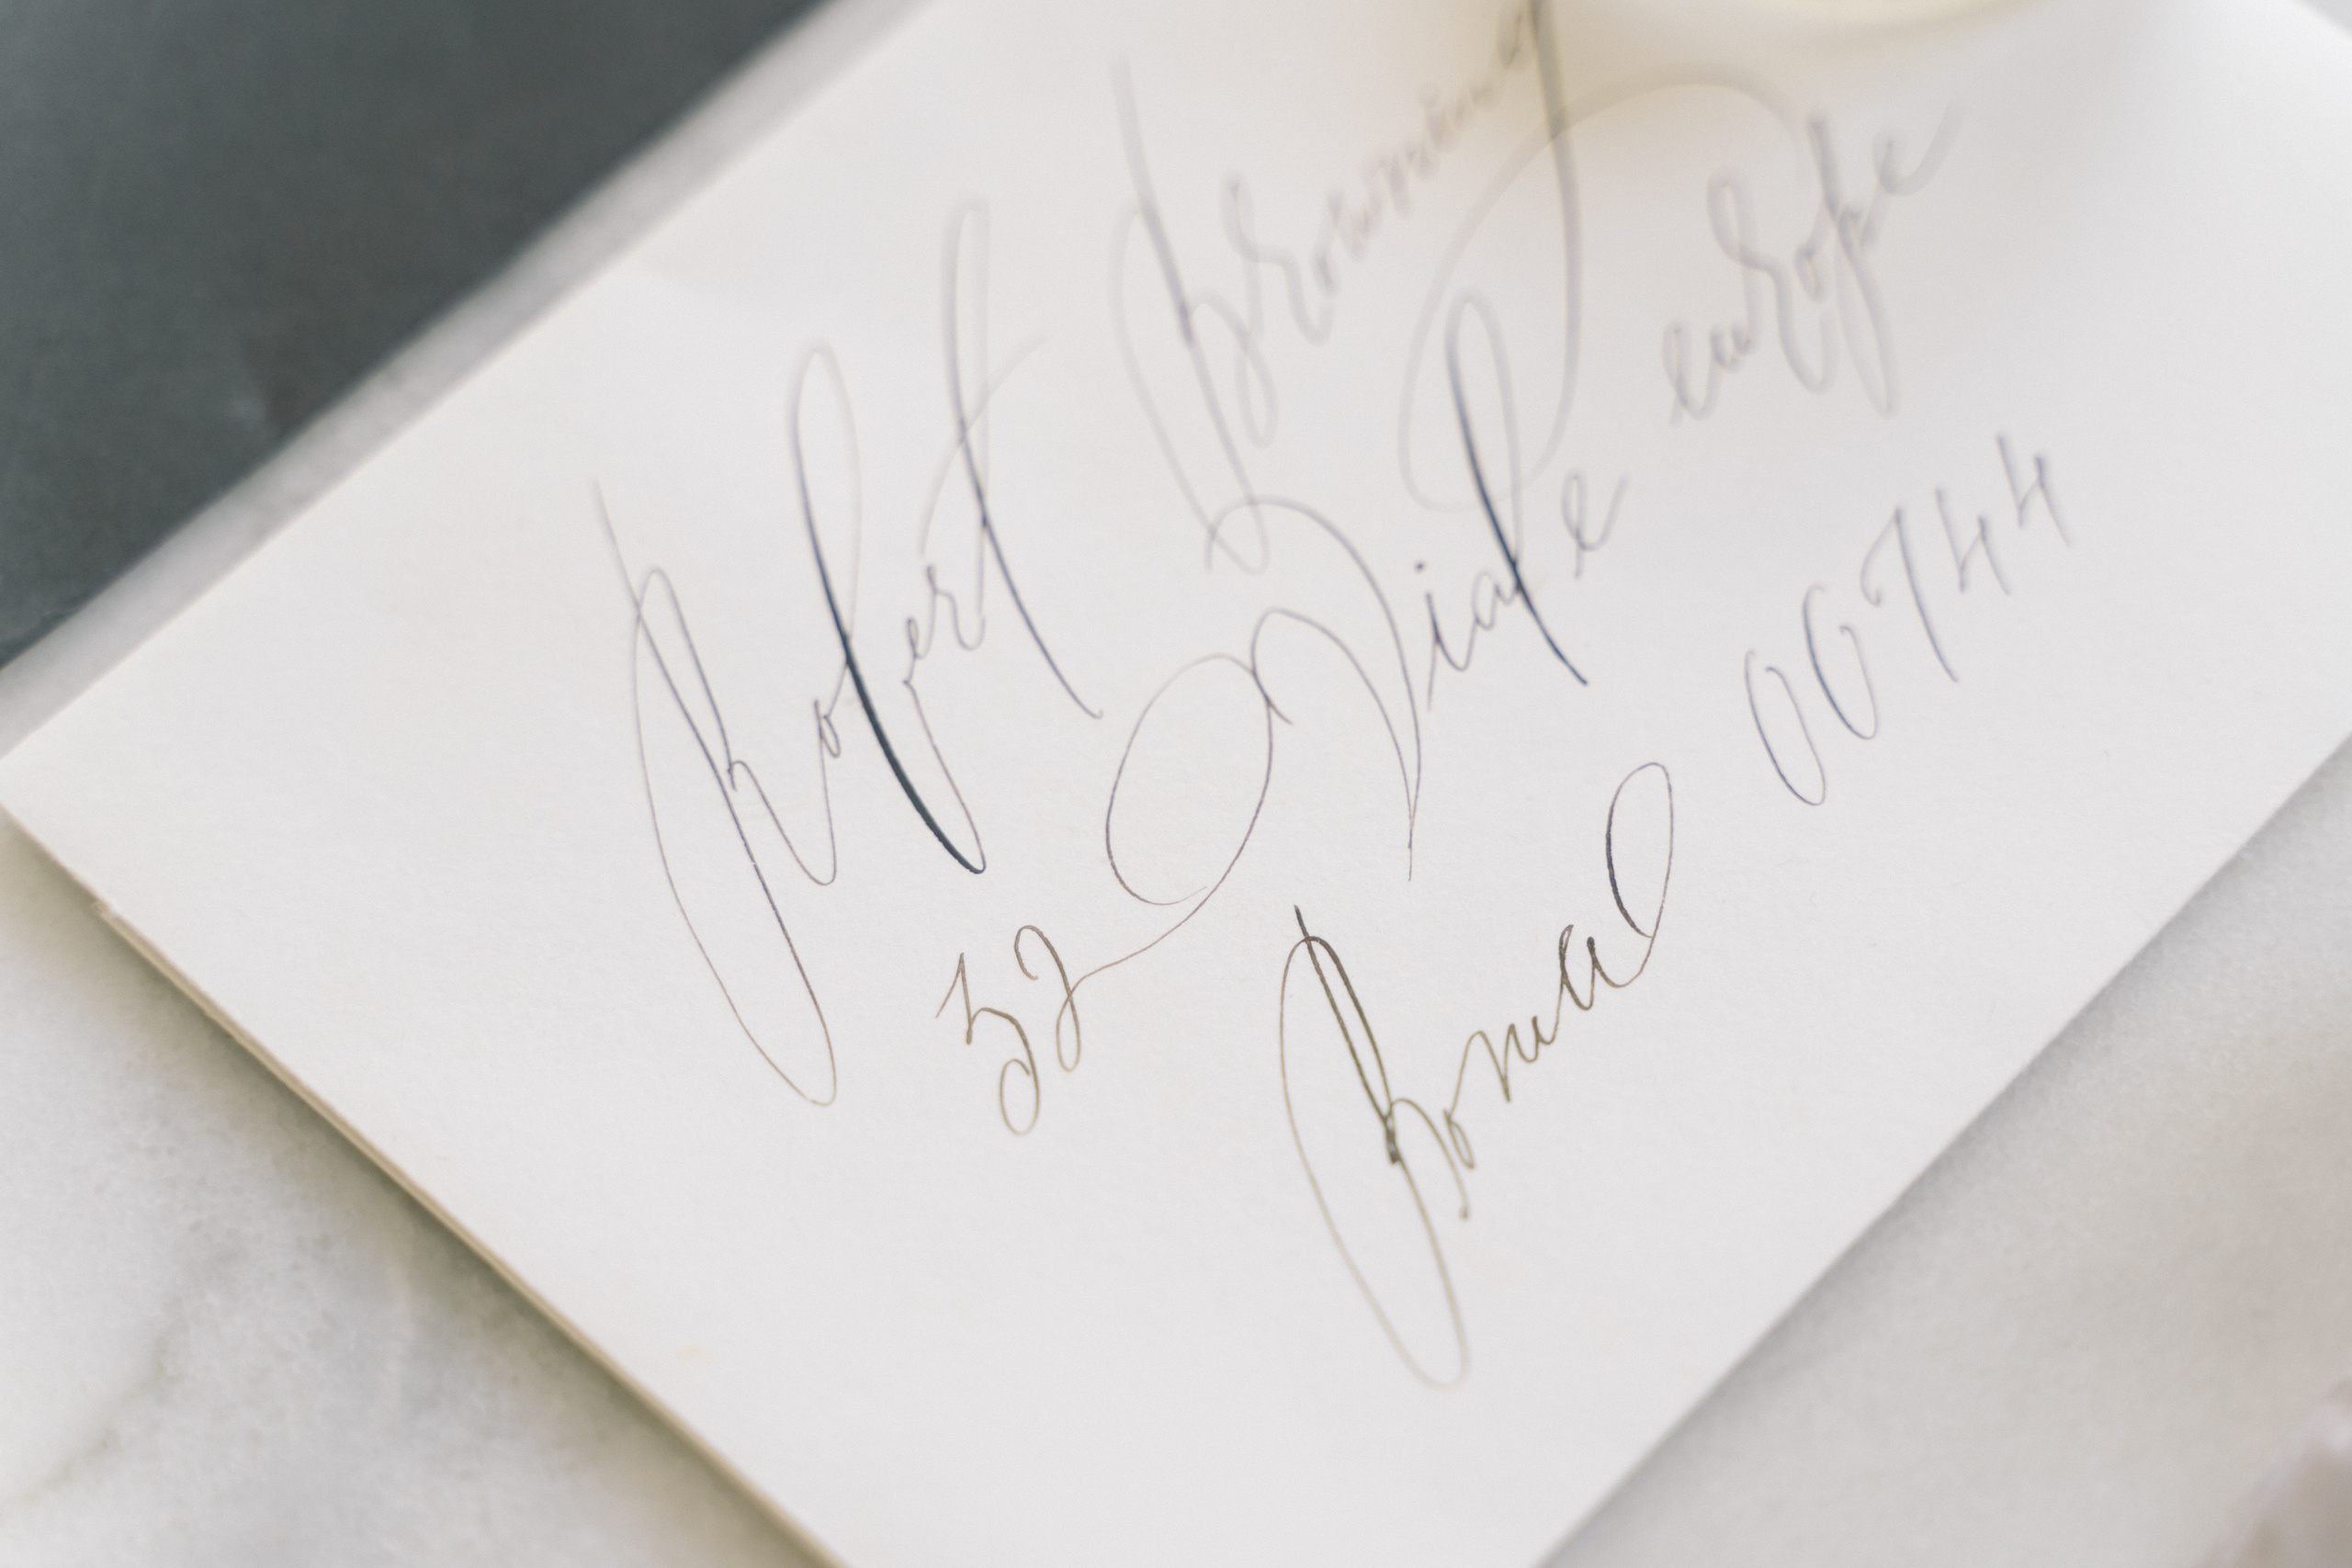 Robert Browning
32 Viale europe
Roma 00744